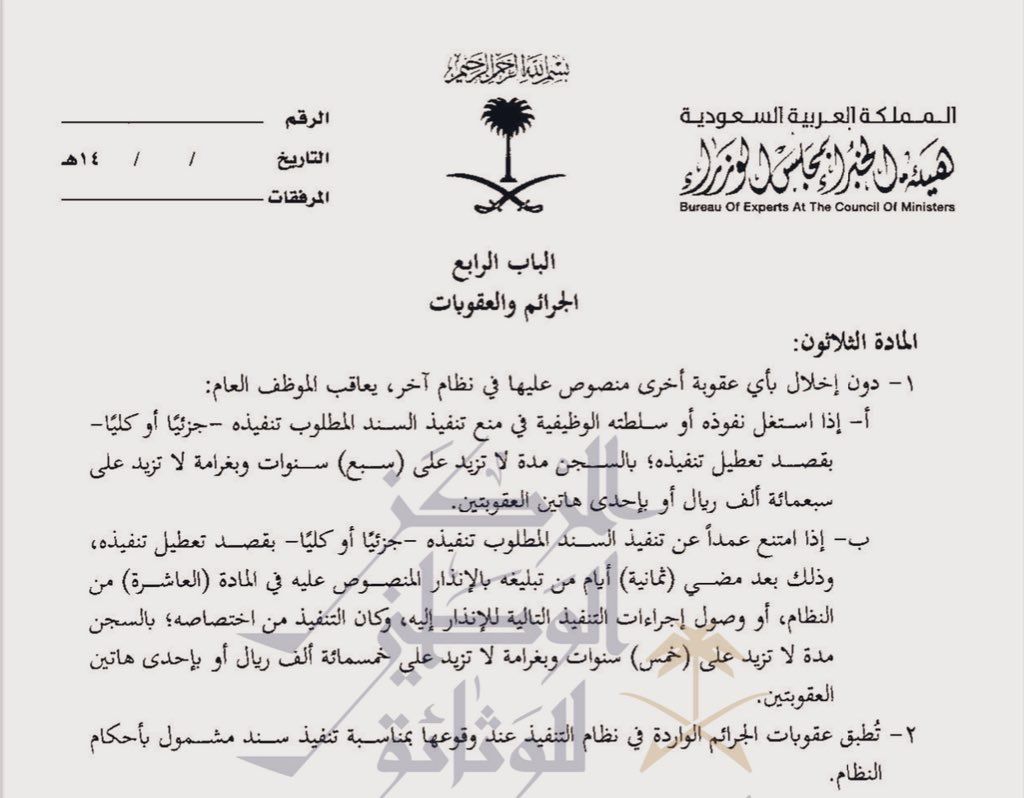 بسم الله الرحمن الرحيم
المملكة العربية السعودية
هيئة الخبراء بمجلس الوزراء
Bureau Of Experts At The Council Of Ministers
الرقم
التاريخ / / ١٤هـ
المرفقات
الباب الرابع
الجرائم والعقوبات
المادة الثلاثون:
١- دون إخلال بأي عقوبة أخرى منصوص عليها في نظام آخر، يعاقب الموظف العام:
أ- إذا استغل نفوذه أو سلطته الوظيفية في منع تنفيذ السند المطلوب تنفيذه -جزئيًا أو كليًا-
بقصد تعطيل تنفيذه؛ بالسجن مدة لا تزيد على (سبع) سنوات وبغرامة لا تزيد على
سبعمائة ألف ريال أو بإحدى هاتين العقوبتين.
ب- إذا امتنع عمداً عن تنفيذ السند المطلوب تنفيذه -جزئيًا أو كليًا- بقصد تعطيل تنفيذه،
وذلك بعد مضي (ثمانية) أيام من تبليغه بالإنذار المنصوص عليه في المادة (العاشرة) من
النظام، أو وصول إجراءات التنفيذ التالية للإنذار إليه، وكان التنفيذ من اختصاصه؛ بالسجن
مدة لا تزيد على (خمس) سنوات وبغرامة لا تزيد على خمسمائة ألف ريال أو بإحدى هاتين
العقوبتين.
٢- تُطبق عقوبات الجرائم الواردة في نظام التنفيذ عند وقوعها بمناسبة تنفيذ سند مشمول بأحكام
النظام.
المركز
الوطني
للوثائق